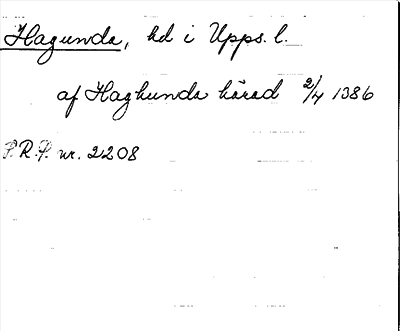 Hagunda, hd i Upps. l.
af Haghunda härad 2/4 1386
S.R.P. nr. 2208